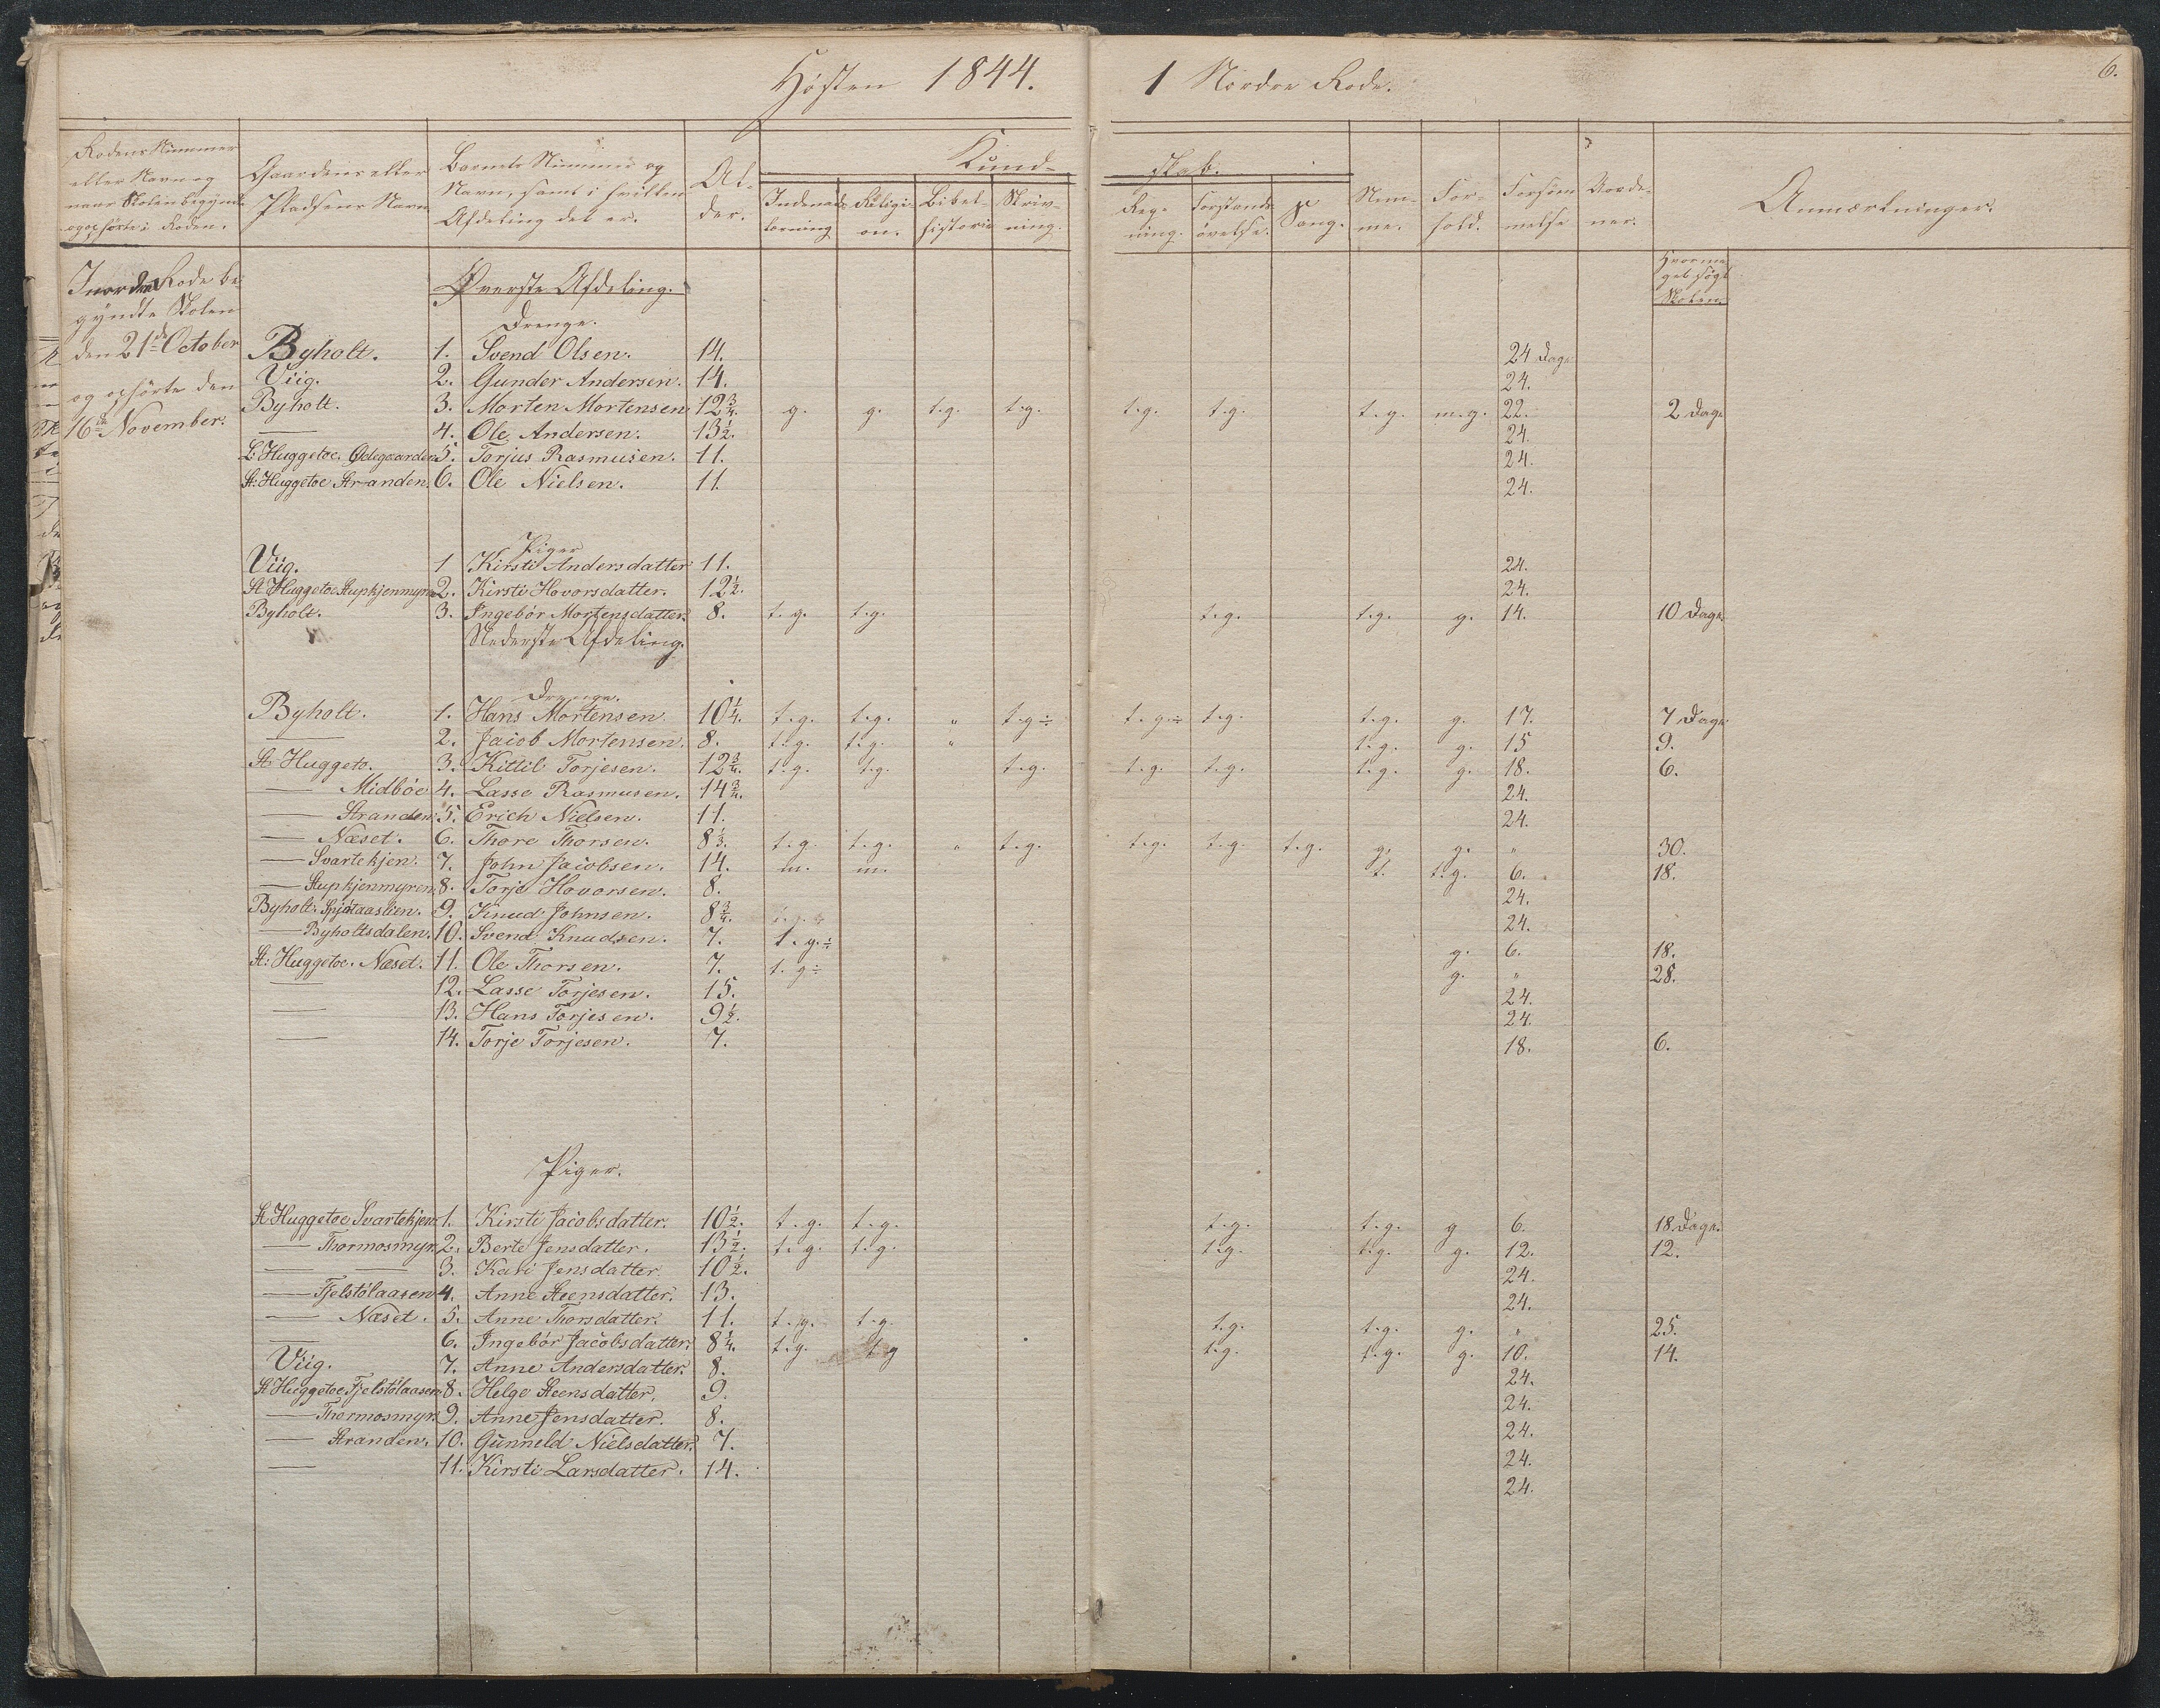 Høsten 1844. 1 Nordre Rode. 6.
Rodens Nummer eller Navn og naar Skolen begyndte og ophørte i Roden. | Gaardens eller Pladsens Navn | Barnets Nummer og Navn, samt i hvilken Afdeling det er. | Alder. | Kundskab. | Indenadslæsning | Religion. | Bibelhistorie | Skrivning. | Regning. | Forstandsøvelse. | Sang. | Nemme. | Forhold. | Forsømmelse | Anmærkninger.
Hvormeget søgt Skolen.
I nordre Rode begyndte Skolen
den 21de October
og ophørte den
16de November.
Øverste Afdeling.
Drenge.
Byholt. 1. Svend Olsen. 14. 24 Dage
Viig. 2. Gunder Andersen. 14. 24.
Byholt. 3. Morten Mortensen 12 3/4. g. g. t.g. t.g. t.g. t.g. t.g. m.g. 22. 2 Dage
— 4. Ole Andersen. 13 1/2. 24.
L. Huggetoe, Ødegaarden 5. Torjus Rasmusen. 11. 24.
St: Huggetoe Stranden. 6. Ole Nielsen. 11. 24.
Piger
Viig. 1 Kirsti Andersdatter 11. 24.
St Huggetoe Stupkjenmyren 2. Kirsti Hovorsdatter. 12 1/2. 24.
Byholt. 3. Ingebór Mortensdatter. 8. t.g. t.g. t.g. t.g. g. 14. 10 Dage
Nederste Afdeling.
Drenge.
Byholt. 1. Hans Mortensen 10 1/4. t.g. t.g. " t.g÷ t.g÷ t.g. t.g. g. 17. 7 Dage
— 2. Jacob Mortensen. 8. t.g. t.g. " t.g. g. 15 9.
St Huggeto. 3. Kittil Torjesen. 12 3/4. t.g. t.g. t.g. t.g. t.g. t.g. g. 18. 6.
— Midbøe 4. Lasse Rasmusen. 14 3/4. 24.
— Stranden. 5. Erich Nielsen. 11. 24.
— Næset. 6. Thore Thorsen. 8 1/3. t.g. t.g. " t.g. t.g. t.g. t.g. g. g. " 30.
— Svartekjen. 7. John Jacobsen. 14. m. m. t. t.g. 6. 18.
— Stupkjenmyren 8. Torje Hovorsen. 8. 24.
Byholt: Spjótaaslien. 9. Knud Johnsen. 8 3/4. 24.
— Byholtsdalen. 10. Svend Knudsen. 7. t.g.÷ g. 6. 18.
St: Huggetoe. Næset. 11. Ole Thorsen. 7. t.g÷ g. " 28.
— 12. Lasse Torjesen. 15. 24.
— 13. Hans Torjesen. 9 1/2. 24.
— 14. Torje Torjesen. 7. 18. 6.
Piger.
St Huggetoe Svartekjen 1. Kirsti Jacobsdatter. 10 1/2. t.g. t.g. t.g. t.g. g 6. 18 Dage.
— Thormosmyr. 2. Berte Jensdatter. 13 1/2. t.g. t.g. t.g. t.g. g. 12. 12.
— — 3. Kari Jensdatter 10 1/2. 24.
— Fjelstólaasen 4. Anne Steensdatter. 13. 24.
— Næset. 5. Anne Thorsdatter. 11. t.g. t.g. t.g. t.g. g. " 25.
— 6. Ingebór Jacobsdatter. 8 1/4. t.g. t g t.g. t.g. g. 10. 14.
Viig. 7. Anne Andersdatter. 8. 24.
St Huggetoe Fjelstólaasen. 8. Helge Steensdatter. 9. 24.
— Thormosmyr. 9. Anne Jensdatter. 8. 24.
— Stranden. 10. Gunneld Nielsdatter. 7. 24.
— 11. Kirsti Larsdatter. 14. 24.